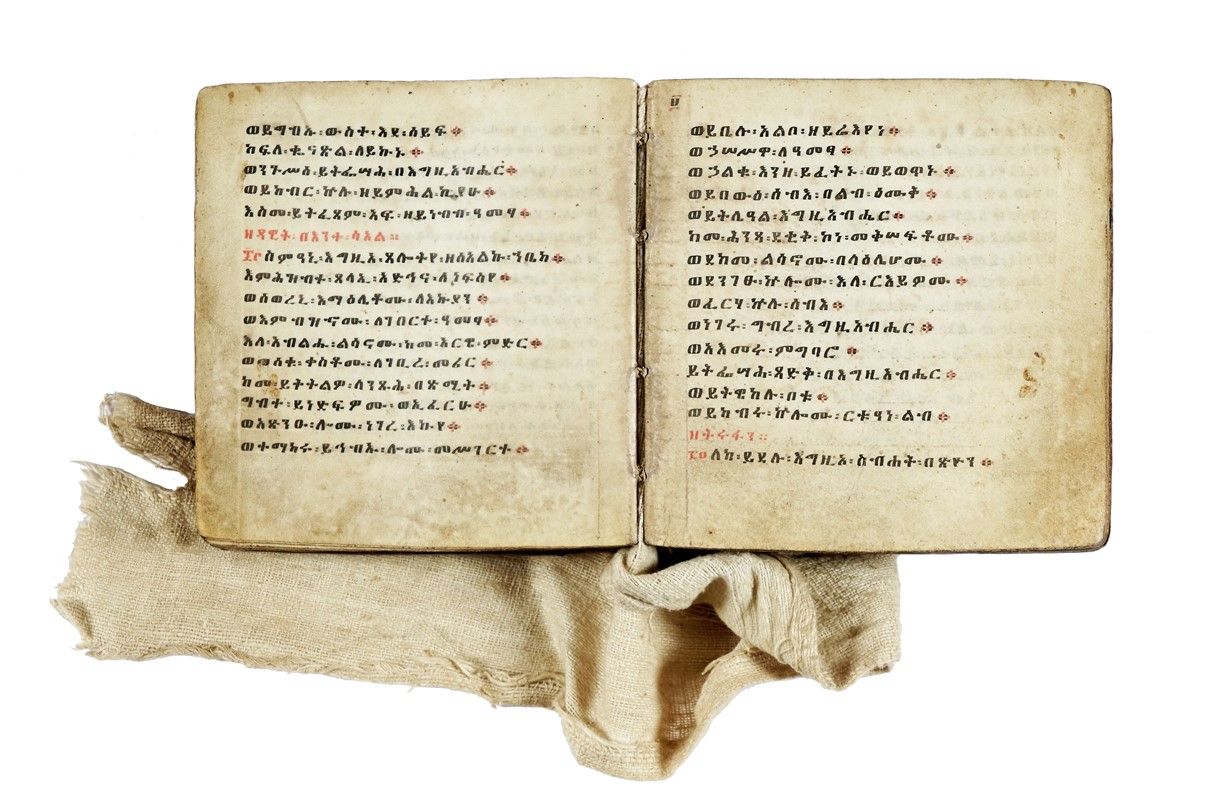 ወይግብኡ፡ውስተ፡እደ፡ሰይፍ
ክፍለ፡ቈናጽል፡ለይኩኑ
ወንጉሥሰ፡ይትፌሣሕ፡በእግዚአብሔር
ወይከብር፡ኵሉ፡ዘይምሕል፡ኪያሁ
እስመ፡ይትፈጸም፡አፍ፡ዘይነብብ፡ዓመፃ
ዘዳዊት፡በእንተ፡ሳኦል።
፷፫ስምዓኒ፡እግዚኦ፡ጸሎትየ፡ዘሰአልኩ፡ኀቤከ
ጸላኢ፡አድኅና፡ለነፍስየ
ወሰወረኒ፡እማዕሌቶሙ፡ለእኩያን
ወእምብዝኆሙ፡ለገበርተ፡ዓመፃ
እለ፡አብልሑ፡ልሳኖሙ፡ከመ፡እርዌ፡ምድር
ወወሰቁ፡ቀስቶሙ፡ለገቢረ፡መሪር
ከመ፡ይቅትልዎ፡ለንጹሕ፡በጽሚት
ግብተ፡ይነድፍዎሙ፡ወኢፈርሁ
ወአጽንዑ፡ሎሙ፡ነገረ፡እኩየ
ወተማከሩ፡ይኅብኡ፡ሎሙ፡መሥገርተ
ወይቤሉ፡አልቦ፡ዘይሬእየነ
ወኃሠሥዋ፡ለዓመፃ
ወኃልቁ፡እንዘ፡ይፈትኑ፡ወይወጥኑ
ወይበውዕ፡ሰብእ፡በልብ፡ዕሙቅ
ወይትሌዓል፡እግዚአብሔር
ከመ፡ሕንጻ፡ደቂቅ፡ኮነ፡መቅሠፍቶሙ
ወደከመ፡ልሳኖሙ፡በላዕሌሆሙ
ወደንገፁ፡ኵሎሙ፡እለ፡ርእይዎሙ
ወፈርሃ፡ኵሉ፡ሰብእ
ወነገሩ፡ግብረ፡እግዚአብሔር
ወአእመሩ፡ምግባሮ
ይትፌሣሕ፡ጻድቅ፡በእግዚአብሔር
ወይትዌከል፡ቦቱ
ወይከብሩ፡ኵሎሙ፡ርቱዓነ፡ልብ
ዘትሩፋን።
፷፬ለከ፡ይደሉ፡እግዚኦ፡ስብሐት፡በጽዮን